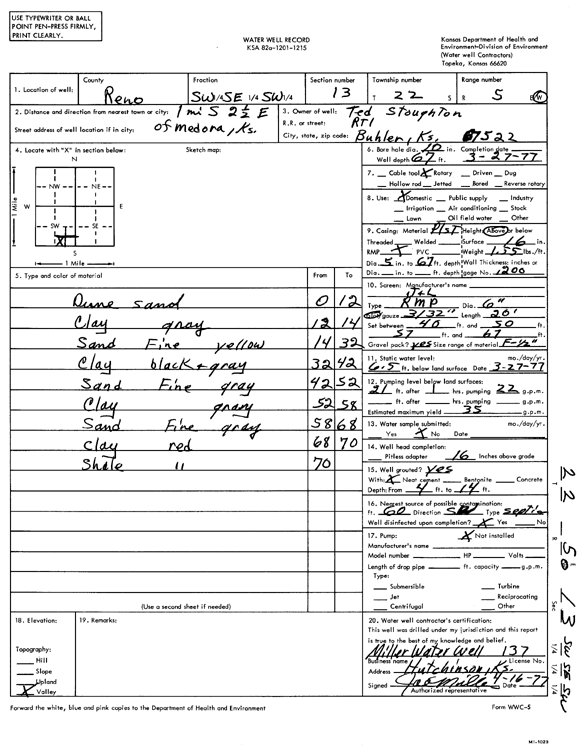 USE TYPEWRITER OR BALL
POINT PEN-PRESS FIRMLY,
PRINT CLEARLY.
WATER WELL RECORD
KSA 82a-1201-1215
Kansas Department of Health and
Environment-Division of Environment
(Water well Contractors)
Topeka, Kansas 66620
1. Location of well:
County
Reno
Fraction
SW 1/4 SE 1/4 SW 1/4
Section number
13
Township number
T 22 S
Range number
R 5 E/W
2. Distance and direction from nearest town or city: 1 mi S 2 1/2 E
Street address of well location if in city: of Medora, Ks.
3. Owner of well: Ted Stoughton
R.R. or street: RT1
City, state, zip code: Buhler, Ks. 67522
4. Locate with "X" in section below:
Sketch map:
N
NW NE
W E
SW SE
X
S
1 Mile
1 Mile
6. Bore hole dia. 10 in. Completion date
Well depth 67 ft. 3-27-77
7. Cable tool X Rotary Driven Dug
Hollow rod Jetted Bored Reverse rotary
8. Use: X Domestic Public supply Industry
Irrigation Air conditioning Stock
Lawn Oil field water Other
9. Casing: Material Plst Height: Above or below
Threaded Welded Surface 16 in.
RMP X PVC Weight 1.55 lbs./ft.
Dia. 5 in. to 67 ft. depth Wall Thickness: inches or
Dia. in. to ft. depth gage No. .200
5. Type and color of material
From To
Dune sand 0 12
Clay gray 12 14
Sand Fine yellow 14 32
Clay black + gray 32 42
Sand Fine gray 42 52
Clay gray 52 58
Sand Fine gray 58 68
Clay red 68 70
Shale " 70
(Use a second sheet if needed)
10. Screen: Manufacturer's name
J+L
Type RMP Dia. 6"
Slot/gauze 3/32" Length 20'
Set between 40 ft. and 50 ft.
57 ft. and 67 ft.
Gravel pack? yes Size range of material F-1/2"
11. Static water level: mo./day/yr.
6.5 ft. below land surface Date 3-27-77
12. Pumping level below land surfaces:
21 ft. after 1 hrs. pumping 22 g.p.m.
ft. after hrs. pumping g.p.m.
Estimated maximum yield 35 g.p.m.
13. Water sample submitted: mo./day/yr.
Yes X No Date
14. Well head completion:
Pitless adapter 16 Inches above grade
15. Well grouted? yes
With: X Neat cement Bentonite Concrete
Depth: From 4 ft. to 14 ft.
16. Nearest source of possible contamination:
ft. 60 Direction Type septic
Well disinfected upon completion? X Yes No
17. Pump: X Not installed
Manufacturer's name
Model number HP Volts
Length of drop pipe ft. capacity g.p.m.
Type:
Submersible Turbine
Jet Reciprocating
Centrifugal Other
18. Elevation:
Topography:
Hill
Slope
Upland
X Valley
19. Remarks:
20. Water well contractor's certification:
This well was drilled under my jurisdiction and this report
is true to the best of my knowledge and belief.
Miller Water Well 137
Business name License No.
Address Hutchinson, Ks.
Signed Date 4-16-77
Authorized representative
Forward the white, blue and pink copies to the Department of Health and Environment
Form WWC-5
T 22 R 5 Sec 13 SW 1/4 SE 1/4 SW 1/4